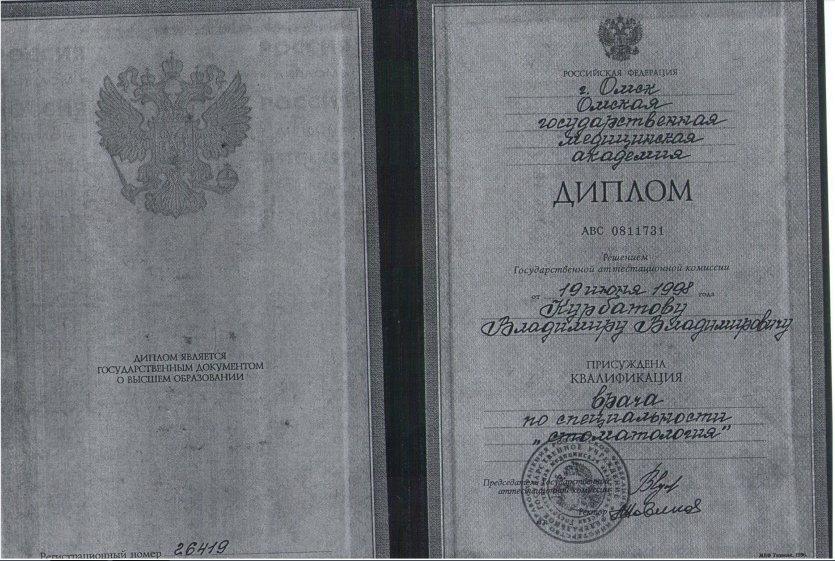 ДИПЛОМ ЯВЛЯЕТСЯ
ГОСУДАРСТВЕННЫМ ДОКУМЕНТОМ
О ВЫСШЕМ ОБРАЗОВАНИИ
Регистрационный номер 26419
РОССИЙСКАЯ ФЕДЕРАЦИЯ
г. Омск
Омская
государственная
медицинская
академия
ДИПЛОМ
АВС 0811731
Решением
Государственной аттестационной комиссии
от 19 июня 1998 года
Курбатову
Владимиру Владимировичу
ПРИСУЖДЕНА
КВАЛИФИКАЦИЯ
врача
по специальности
„стоматология"
Председатель Государственной
аттестационной комиссии
Ректор